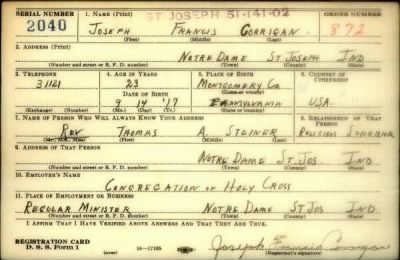 SERIAL NUMBER 1. NAME (Print) ST JOSEPH 51-141-02 ORDER NUMBER
2040 JOSEPH FRANCIS CORRIGAN 872
(First) (Middle) (Last)
2. ADDRESS (Print)
NOTRE DAME ST JOSEPH IND
(Number and street or R. F. D. number) (Town) (County) (State)
3. TELEPHONE 4. AGE IN YEARS 5. PLACE OF BIRTH 6. COUNTRY OF CITIZENSHIP
31121 23 MONTGOMERY CO
DATE OF BIRTH (Town or county)
9 14 '17 PENNSYLVANIA USA.
(Exchange) (Number) (Mo.) (Day) (Yr.) (State or country)
7. NAME OF PERSON WHO WILL ALWAYS KNOW YOUR ADDRESS 8. RELATIONSHIP OF THAT PERSON
REV THOMAS A. STEINER RELIGIOUS SUPERIOR
(Mr., Mrs., Miss) (First) (Middle) (Last)
9. ADDRESS OF THAT PERSON
NOTRE DAME ST JOS IND
(Number and street or R. F. D. number) (Town) (County) (State)
10. EMPLOYER'S NAME
CONGREGATION OF HOLY CROSS
11. PLACE OF EMPLOYMENT OR BUSINESS
REGULAR MINISTER NOTRE DAME ST JOS IND
(Number and street or R. F. D. number) (Town) (County) (State)
I AFFIRM THAT I HAVE VERIFIED ABOVE ANSWERS AND THAT THEY ARE TRUE.
REGISTRATION CARD
D. S. S. Form 1 (over) 16-17105 Joseph Francis Corrigan
(Registrant's signature)